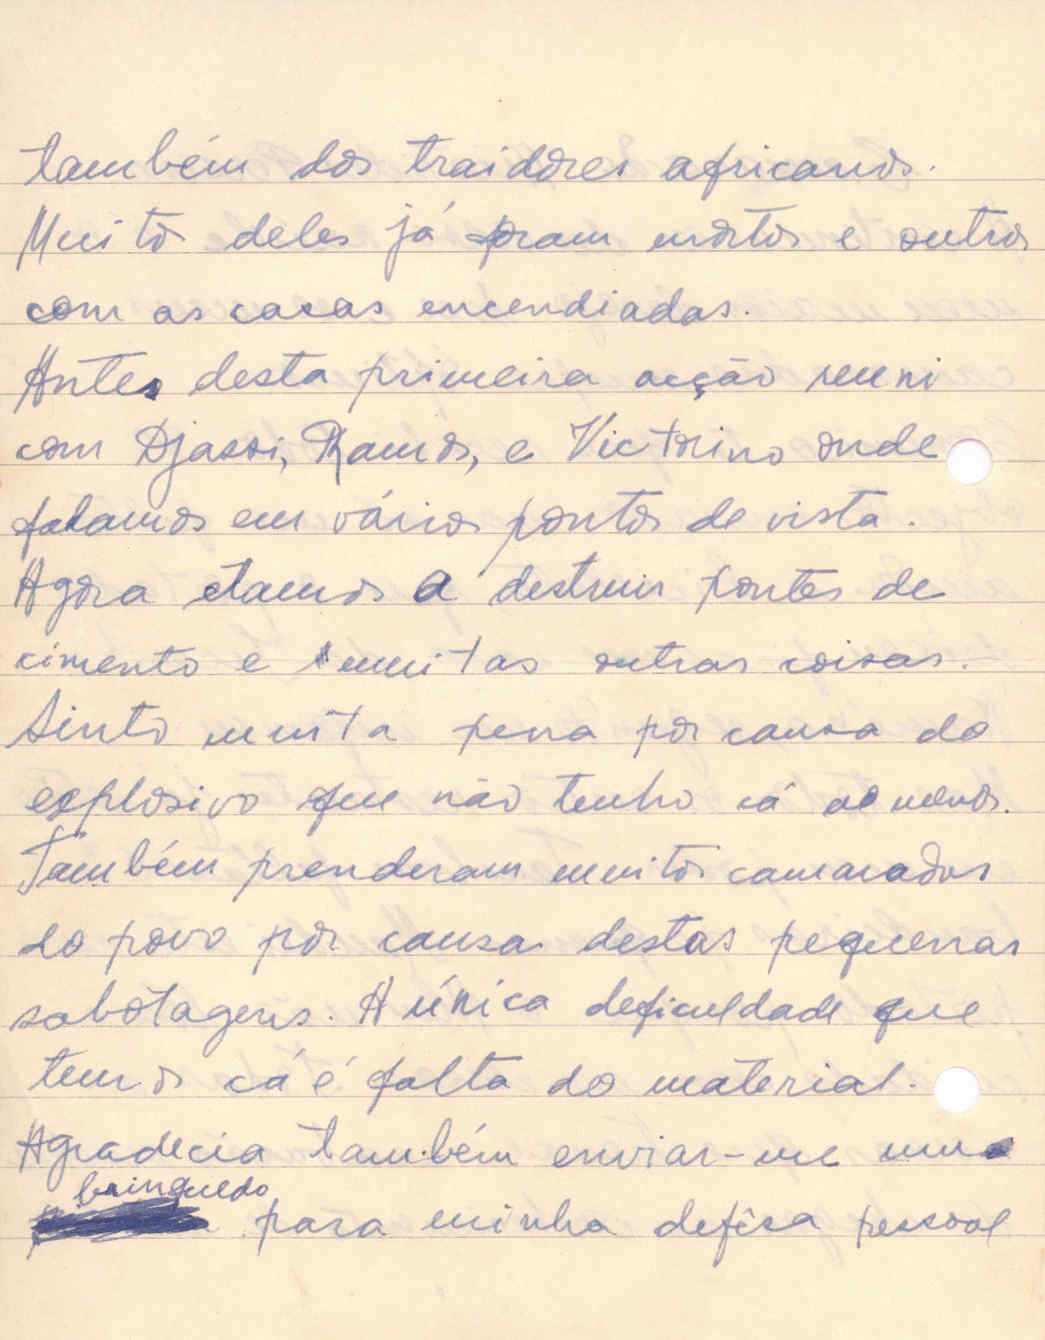 também dos traidores africanos.
Muitos deles já foram mortos e outros
com as casas encendiadas.
Antes desta primeira acção reuni
com Djassi, Ramos, e Victorino onde
falamos em vários pontos de vista.
Agora etamos a destruir pontes de
cimento e muitas outras coisas.
Sinto muita pena por causa do
explosivo que não tenho cá ao menos.
Também prenderam muitos camaradas
do povo por causa destas pequenas
sabotagens. A única deficuldade que
temos cá é falta do material.
Agradecia também enviar-me um
brinquedo
para minha defêsa pessoal